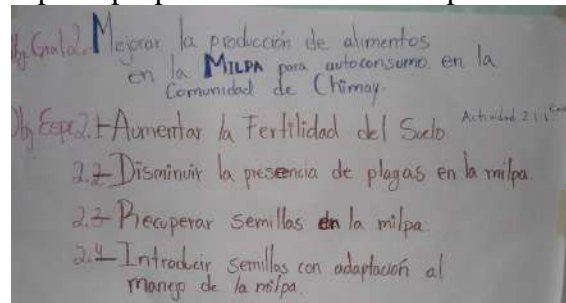 Obj. Gral 2. Mejorar la producción de alimentos
en la MILPA para autoconsumo en la
Comunidad de Chimay.
Obj Espe 2.1- Aumentar la Fertilidad del Suelo Actividad 2.1.1
2.2- Disminuir la presencia de plagas en la milpa.
2.3- Recuperar semillas en la milpa.
2.4- Introducir semillas con adaptación al
manejo de la milpa.